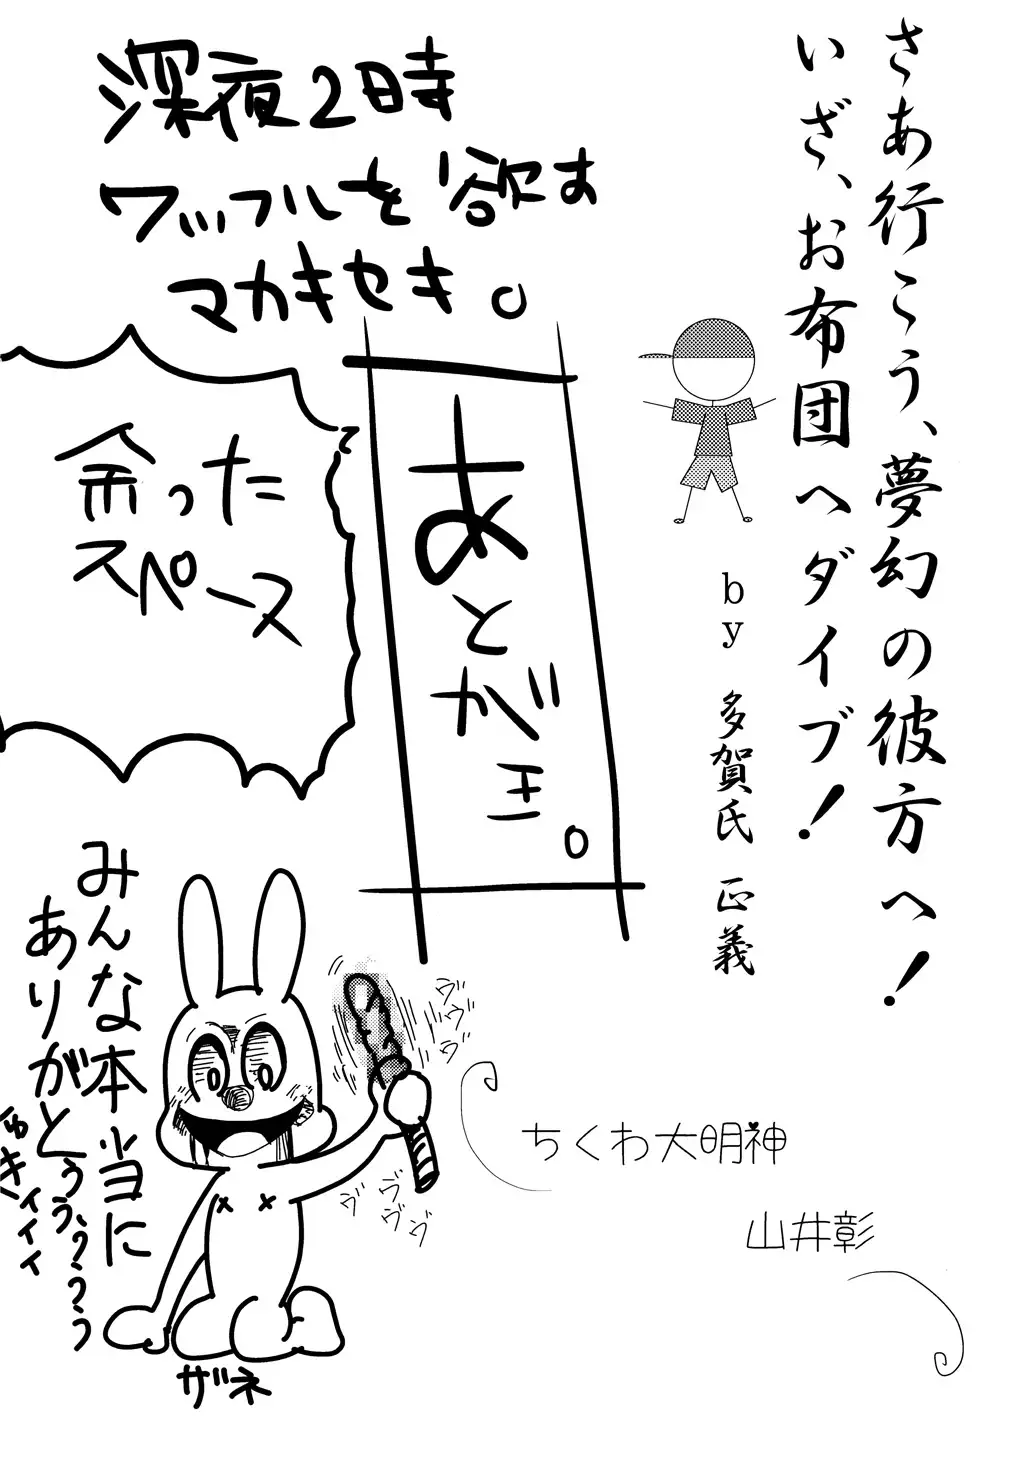 さあ行こう、夢幻の彼方へ!
いざ、お布団へダイブ!
by 多賀氏 正義
深夜2時
ワッフルを欲す
マカキセキ。
あとがき。
余った
スペース
て
ちくわ大明神
山井彰
ヴヴヴヴ
ヴヴヴヴ
みんな本当に
ありがとぅぅぅぅぅ
ザネ